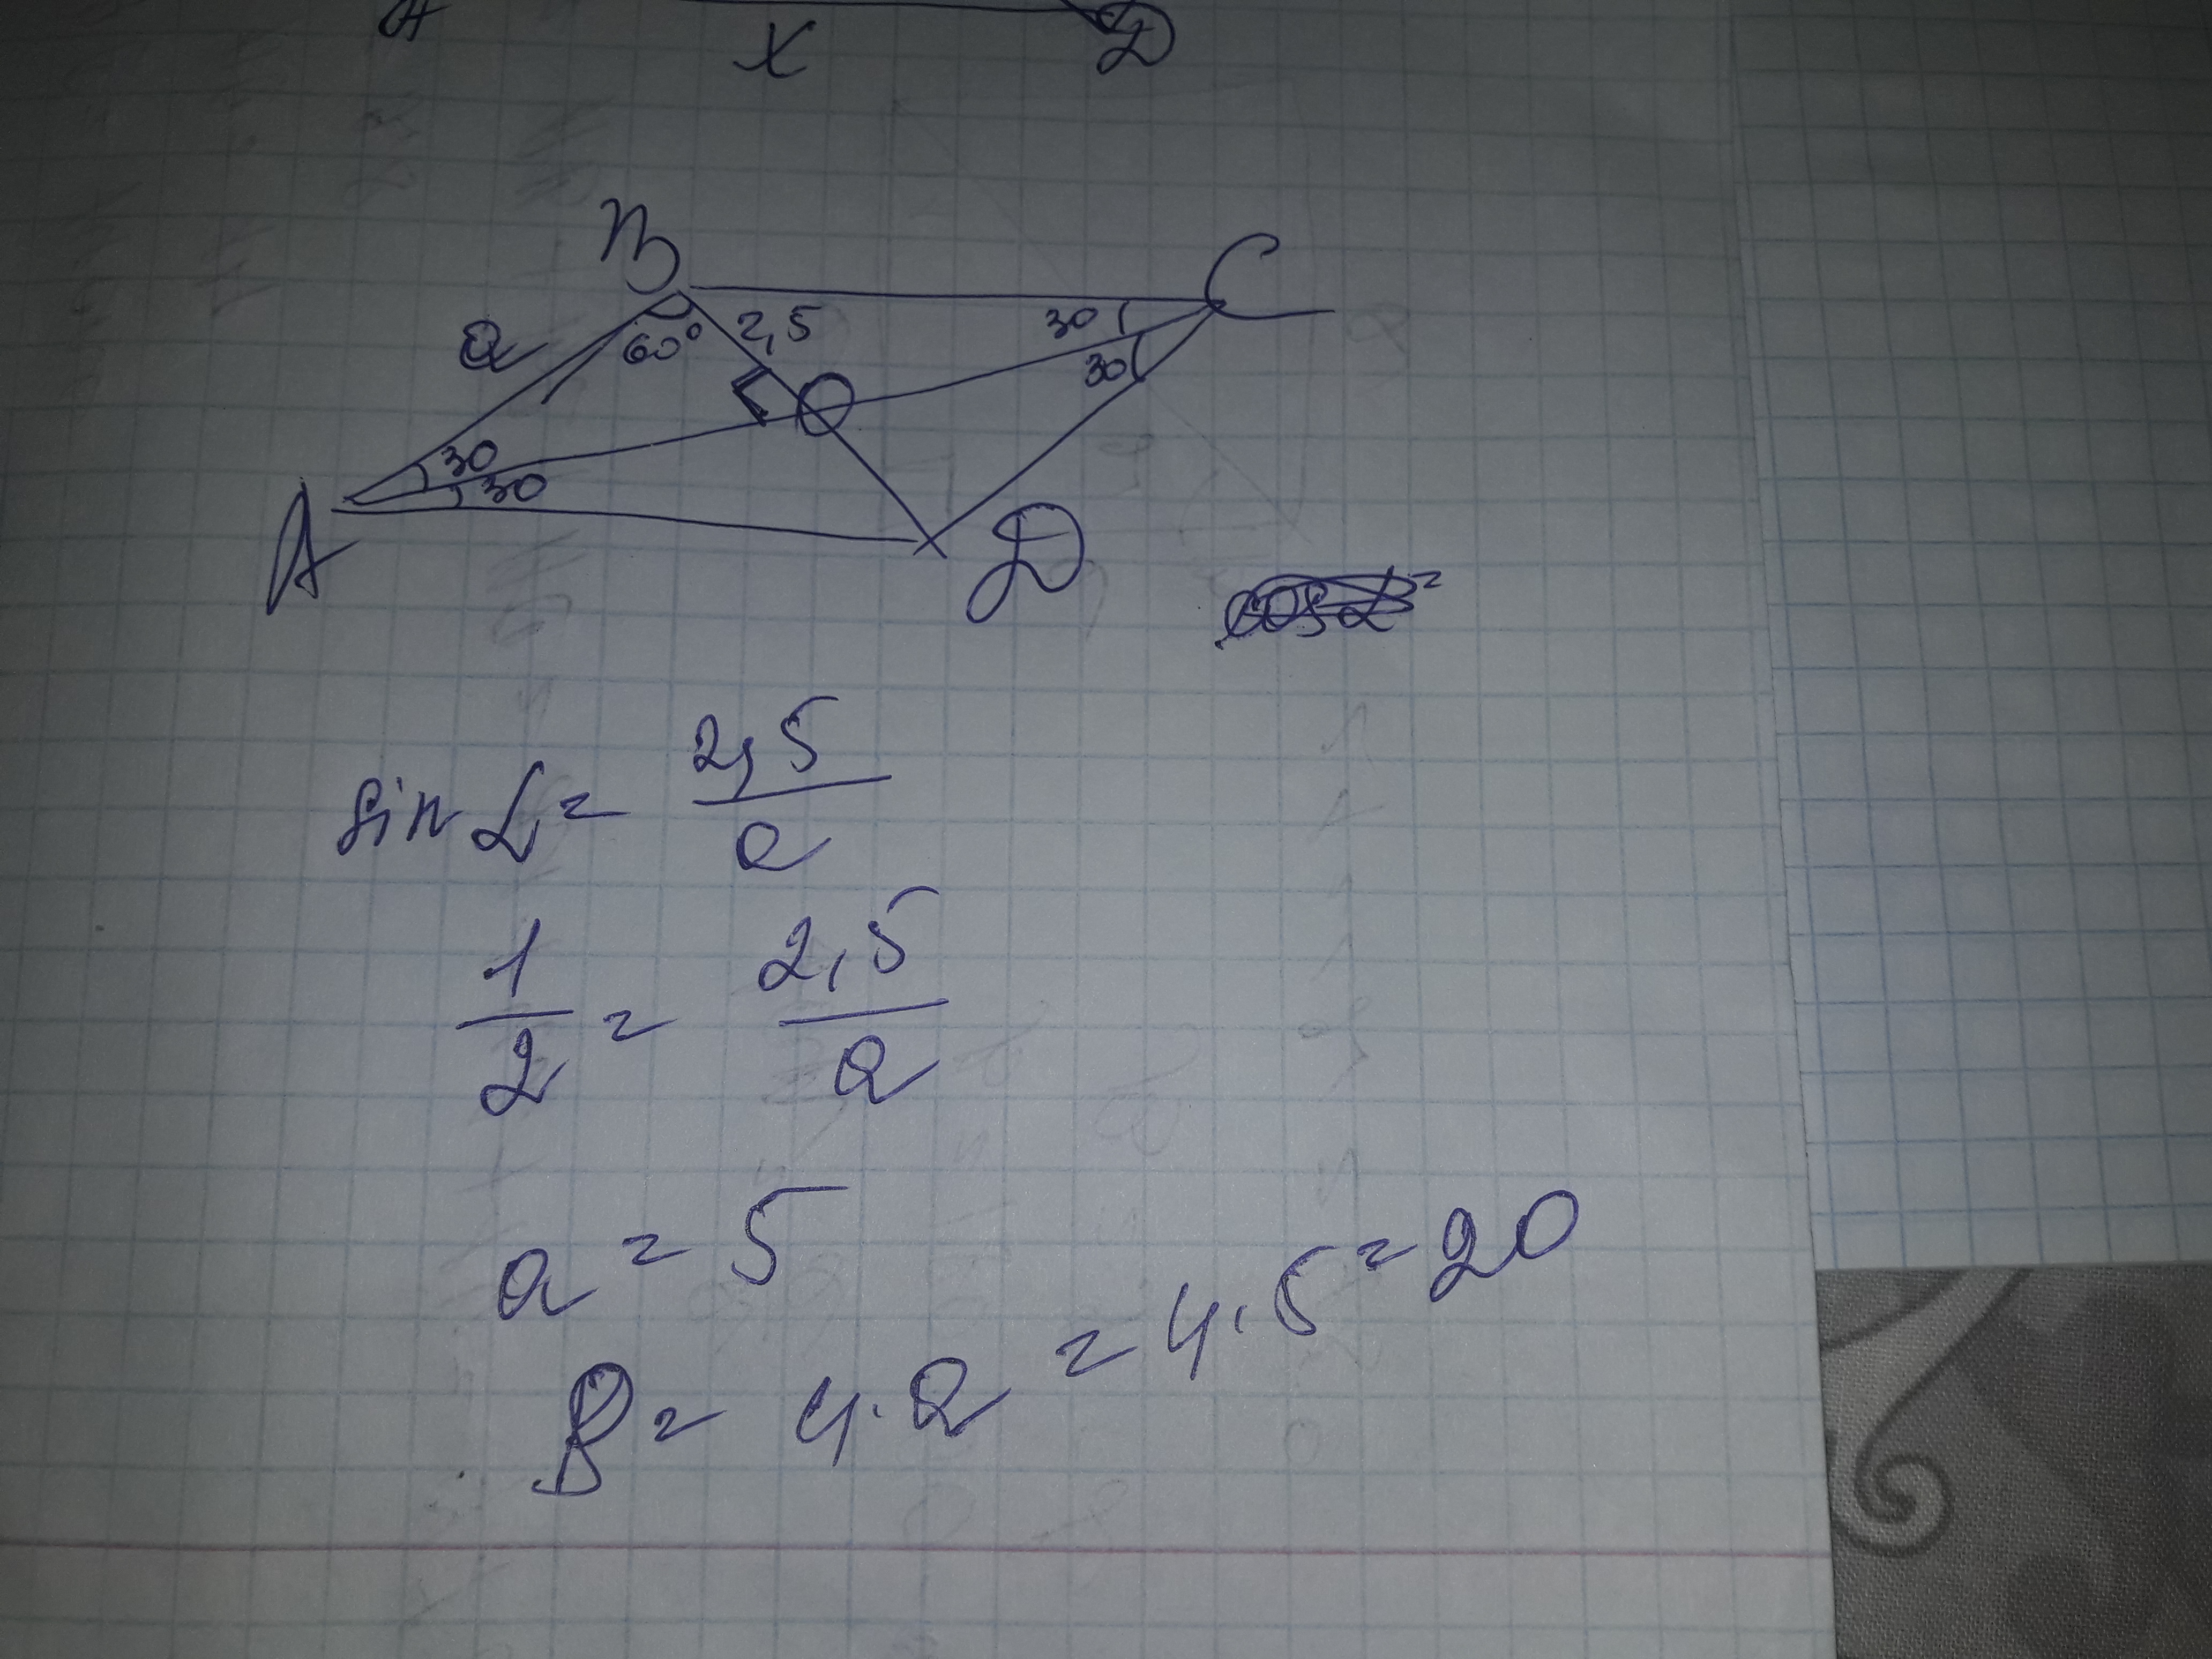 A
x
D
B
C
a
60°
2,5
30
30
O
30
30
A
D
sin α = 2,5/a
1/2 = 2,5/a
a = 5
P = 4·a = 4·5 = 20